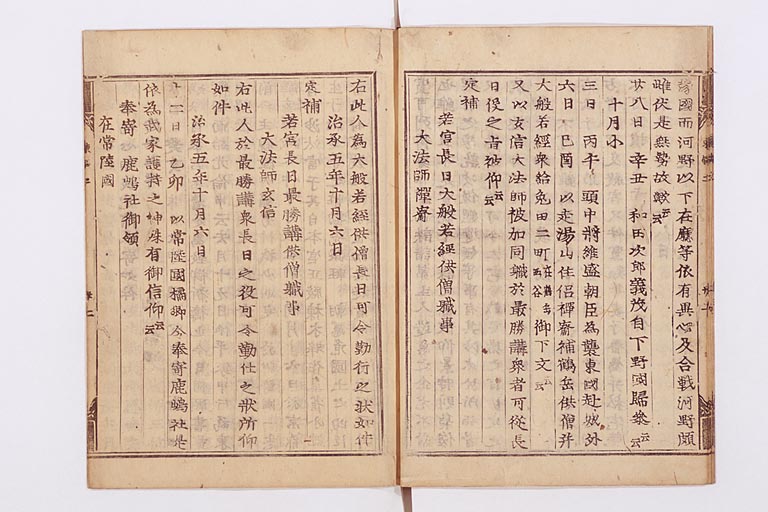 國而河野以下在廳等依有異心及合戰河野頗
雌伏是無勢故歟云云
廿八日 辛丑 和田次郎義茂自下野國歸參云云
十月小
三日 丙午 頭中將維盛朝臣為襲東國赴城外
六日 己酉 以走湯山住侶禪睿補鶴岳供僧并
大般若經衆給免田二町在鶴岳西谷御下文云云
又以玄信大法師被加同職於最勝講衆者可從長
日役之旨被仰云云
定補
若宮長日大般若經供僧職事
大法師禪睿
右此人為大般若經供僧長日可令勤行之狀如件
治承五年十月六日
定補
若宮長日最勝講供僧職事
大法師玄信
右此人於最勝講衆長日之役可令勤仕之狀所仰
如件
治承五年十月六日
十二日 乙卯 以常陸國橘郷令奉寄鹿嶋社是
依為武家護持之神殊有御信仰云云
奉寄 鹿嶋社御領
在常陸國